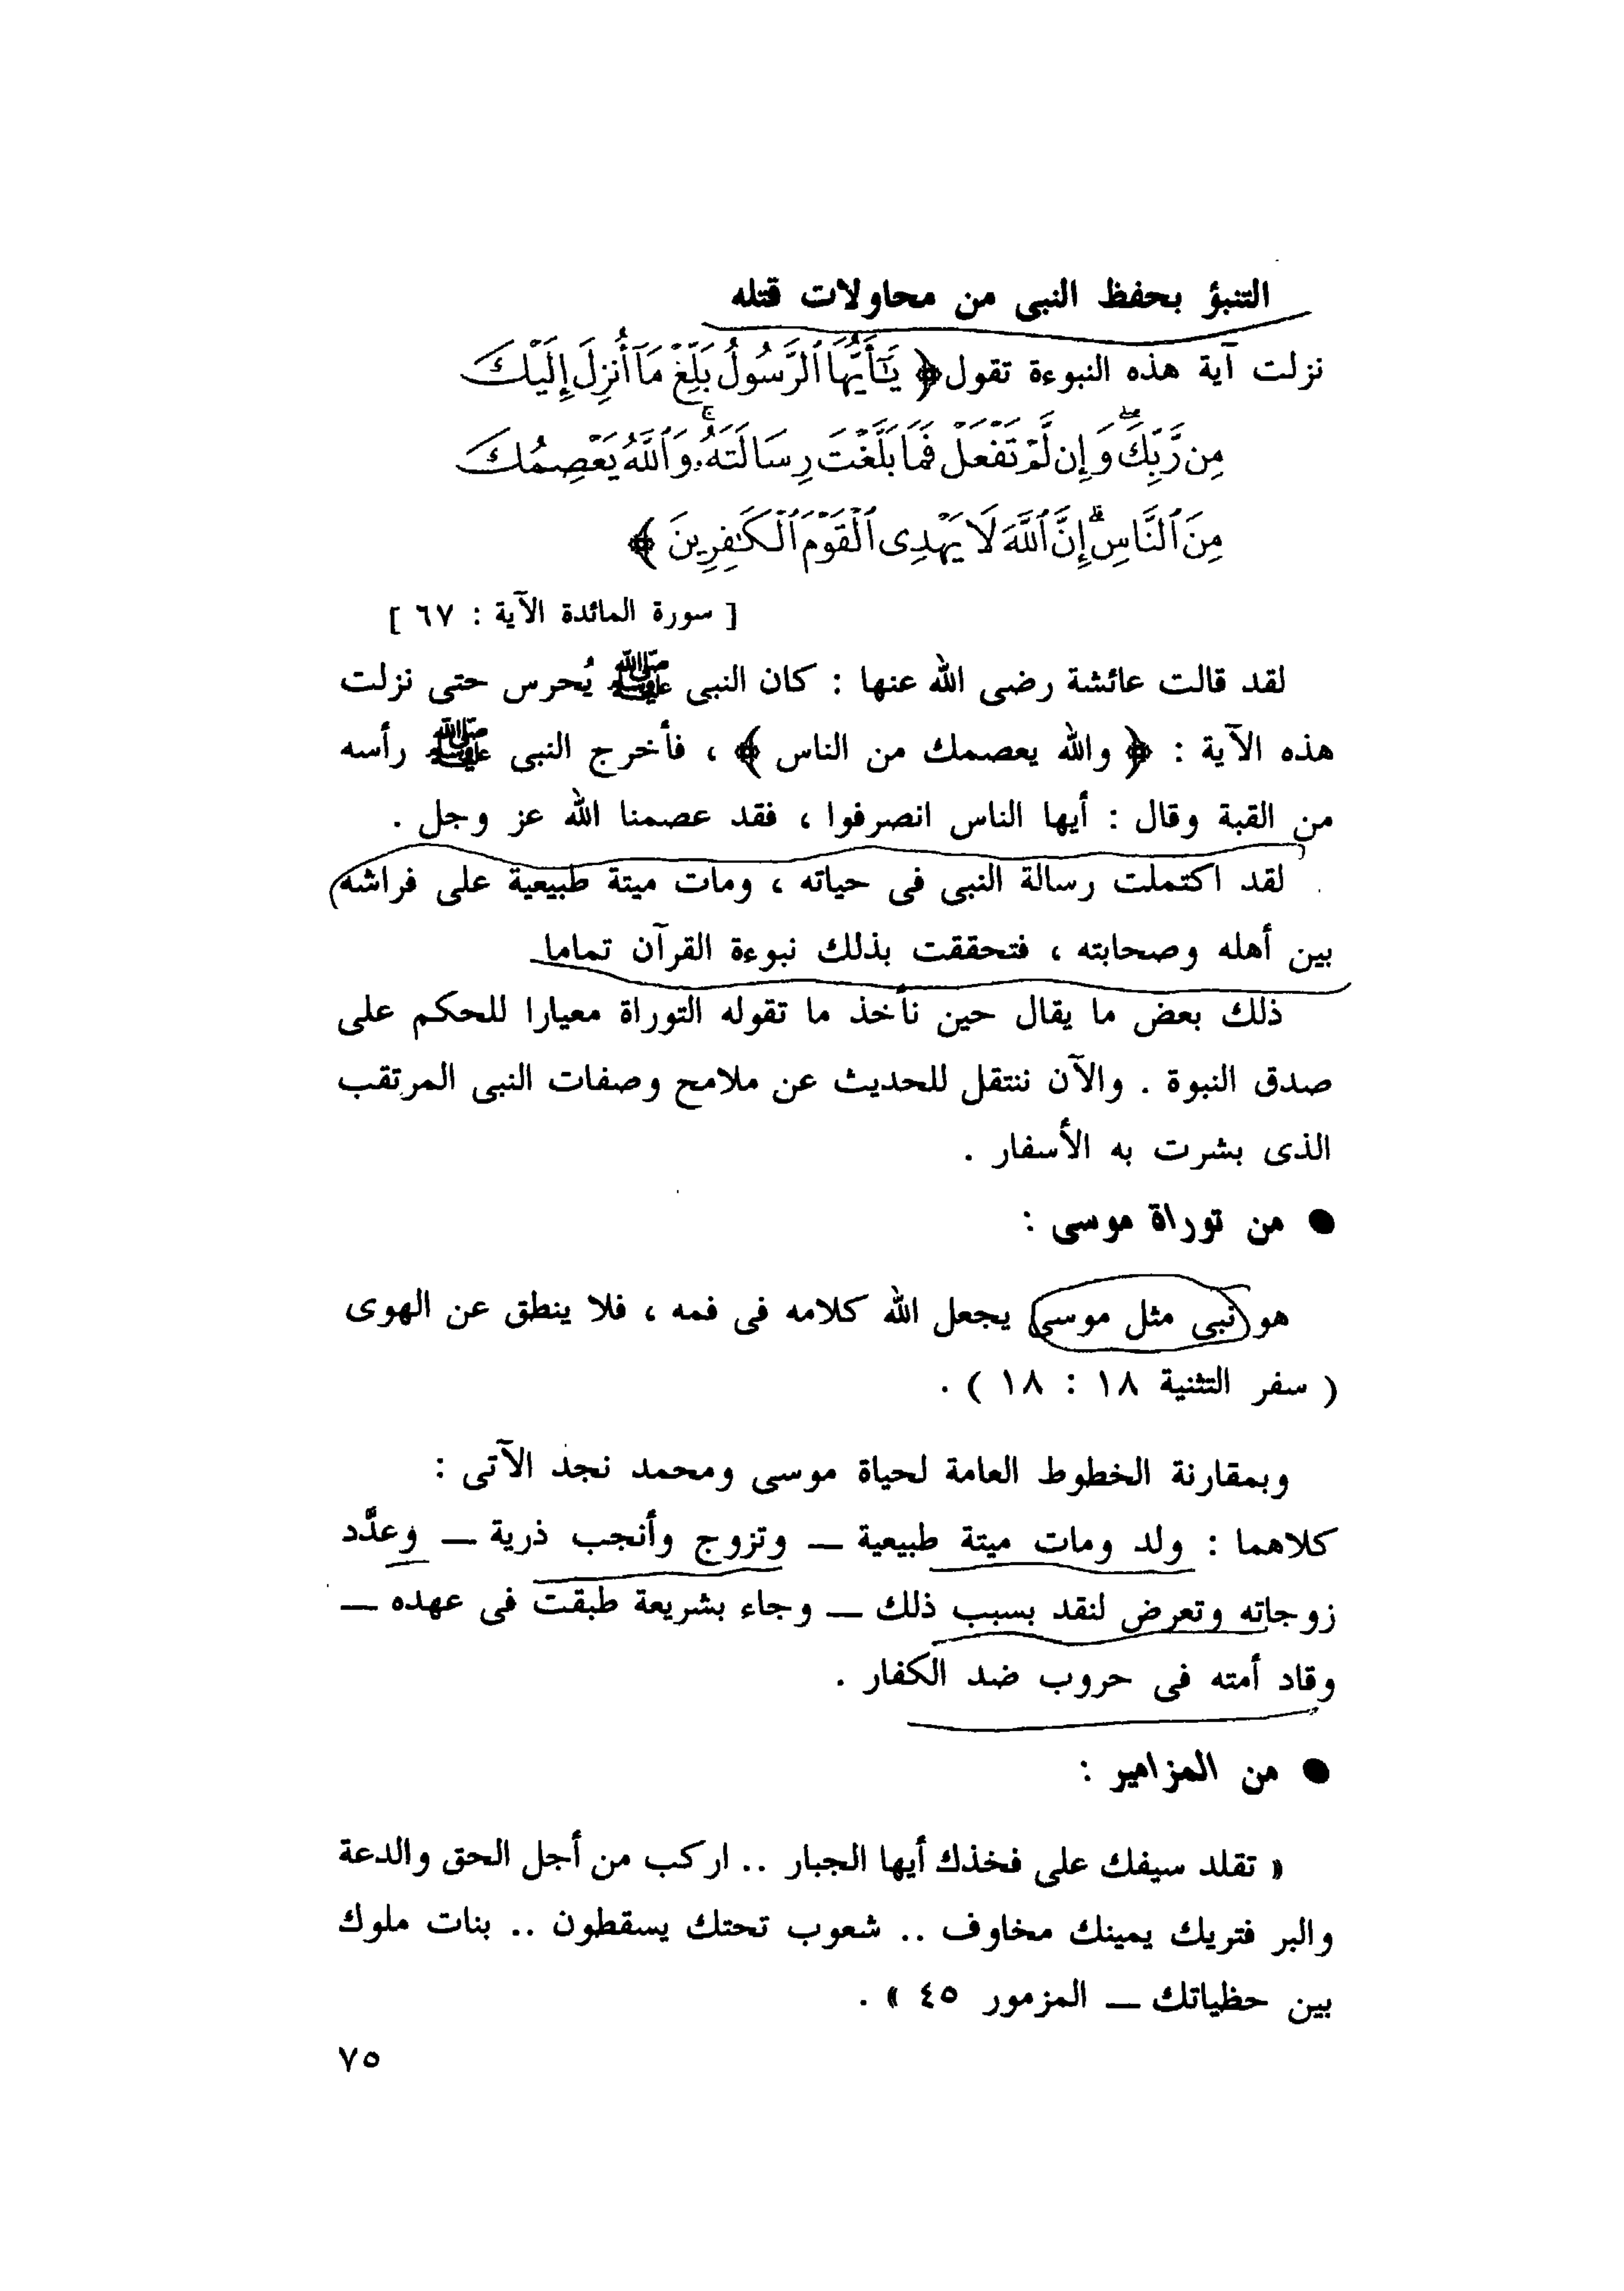 التنبؤ بحفظ النبى من محاولات قتله
نزلت آية هذه النبوءة تقول ﴿ يَٰٓأَيُّهَا ٱلرَّسُولُ بَلِّغْ مَآ أُنزِلَ إِلَيْكَ
مِن رَّبِّكَ ۖ وَإِن لَّمْ تَفْعَلْ فَمَا بَلَّغْتَ رِسَالَتَهُۥ ۚ وَٱللَّهُ يَعْصِمُكَ
مِنَ ٱلنَّاسِ ۗ إِنَّ ٱللَّهَ لَا يَهْدِى ٱلْقَوْمَ ٱلْكَٰفِرِينَ ﴾
[ سورة المائدة الآية : ٦٧ ]
لقد قالت عائشة رضى الله عنها : كان النبى ﷺ يُحرس حتى نزلت
هذه الآية : ﴿ والله يعصمك من الناس ﴾ ، فأخرج النبى ﷺ رأسه
من القبة وقال : أيها الناس انصرفوا ، فقد عصمنا الله عز وجل .
لقد اكتملت رسالة النبى فى حياته ، ومات ميتة طبيعية على فراشه
بين أهله وصحابته ، فتحققت بذلك نبوءة القرآن تماما
ذلك بعض ما يقال حين نأخذ ما تقوله التوراة معيارا للحكم على
صدق النبوة . والآن ننتقل للحديث عن ملامح وصفات النبى المرتقب
الذى بشرت به الأسفار .
● من توراة موسى :
هو نبى مثل موسى يجعل الله كلامه فى فمه ، فلا ينطق عن الهوى
( سفر التثنية ١٨ : ١٨ ) .
وبمقارنة الخطوط العامة لحياة موسى ومحمد نجد الآتى :
كلاهما : ولد ومات ميتة طبيعية — وتزوج وأنجب ذرية — وعدَّد
زوجاته وتعرض لنقد بسبب ذلك — وجاء بشريعة طبقت فى عهده —
وقاد أمته فى حروب ضد الكفار .
● من المزامير :
« تقلد سيفك على فخذك أيها الجبار .. اركب من أجل الحق والدعة
والبر فتريك يمينك مخاوف .. شعوب تحتك يسقطون .. بنات ملوك
بين حظياتك — المزمور ٤٥ » .
٧٥